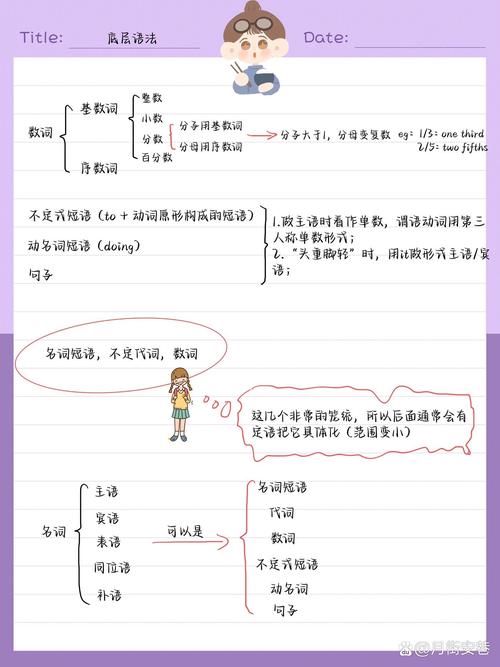 Title: 底层语法 Date:
数词
基数词
整数
小数
分数
百分数
序数词
分子用基数词
分母用序数词
分子大于1，分母变复数 eg：1/3：one third
2/5：two fifths
不定式短语（to + 动词原形构成的短语）
动名词短语（doing）
句子
1.做主语时看作单数，谓语动词用第三
人称单数形式；
2.“头重脚轻”时，用it做形式主语/宾
语；
名词短语，不定代词，数词
这几个非常的笼统，所以后面通常会有
定语把它具体化（范围变小）
名词
主语
宾语
表语
同位语
补语
可以是
名词短语
代词
数词
不定式短语
动名词
句子